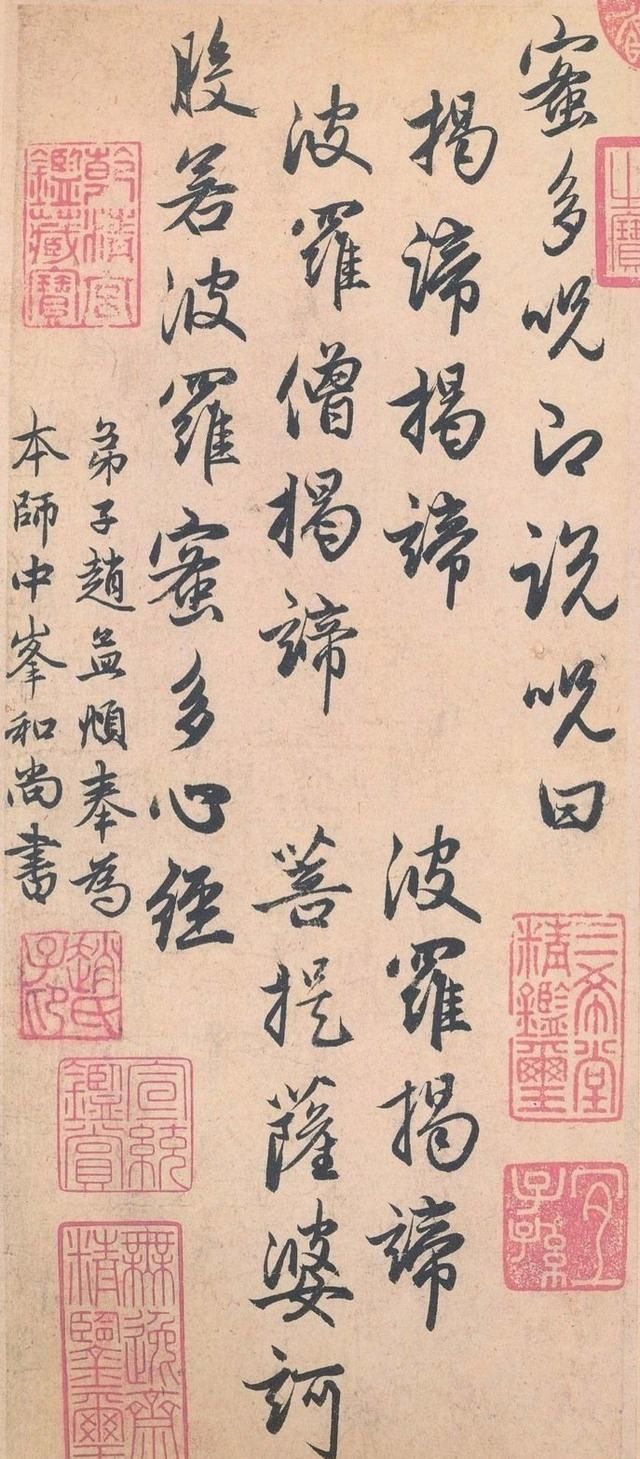 蜜多呪即説呪曰
揭諦揭諦　波羅揭諦
波羅僧揭諦　菩提薩婆訶
般若波羅蜜多心經
弟子趙孟頫奉為
本師中峯和尚書
之寶
三希堂精鑑璽
宜子孫
乾清宮鑑藏寶
趙氏子昂
宣統鑑賞
無逸齋精鑑璽